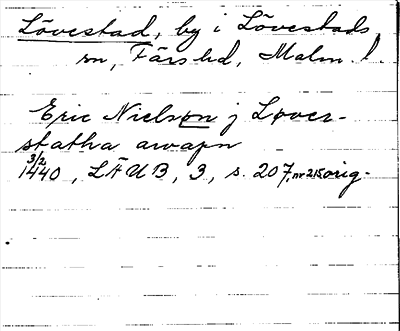 Lövestad, by i Lövestads
sn, Färs hd, Malm. l.
Eric Nielson j Løver-
statha awapn
3/2
1440, LÄUB, 3, s. 207, nr 215 orig.